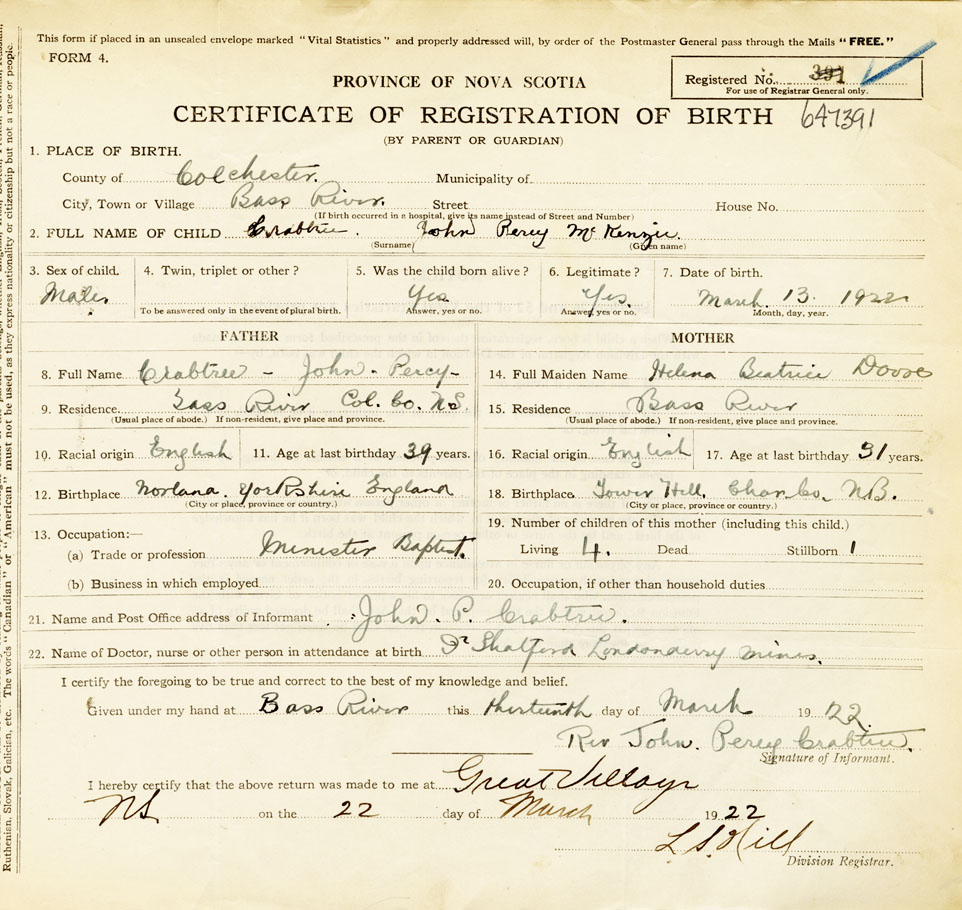 This form if placed in an unsealed envelope marked "Vital Statistics" and properly addressed will, by order of the Postmaster General pass through the Mails "FREE."
FORM 4.
PROVINCE OF NOVA SCOTIA
Registered No. 391
For use of Registrar General only.
CERTIFICATE OF REGISTRATION OF BIRTH 647391
(BY PARENT OR GUARDIAN)
1. PLACE OF BIRTH.
County of Colchester. Municipality of
City, Town or Village Bass River. Street House No.
(If birth occurred in a hospital, give its name instead of Street and Number)
2. FULL NAME OF CHILD Crabtree. John Percy McKenzie.
(Surname) (Given name)
3. Sex of child. 4. Twin, triplet or other? 5. Was the child born alive? 6. Legitimate? 7. Date of birth.
Male Yes Yes. March. 13. 1922
To be answered only in the event of plural birth. Answer, yes or no. Answer, yes or no. Month, day, year.
FATHER MOTHER
8. Full Name Crabtree - John - Percy - 14. Full Maiden Name Helena Beatrice
9. Residence Bass River Col. Co. N.S. 15. Residence Bass River
(Usual place of abode.) If non-resident, give place and province. (Usual place of abode.) If non-resident, give place and province.
10. Racial origin English 11. Age at last birthday 39 years. 16. Racial origin English 17. Age at last birthday 31 years.
12. Birthplace Yorkshire England 18. Birthplace Tower Hill. Char. Co. N.B.
(City or place, province or country.) (City or place, province or country.)
19. Number of children of this mother (including this child.)
13. Occupation:—
(a) Trade or profession Minister Baptist. Living 4. Dead Stillborn 1
(b) Business in which employed 20. Occupation, if other than household duties
21. Name and Post Office address of Informant John. P. Crabtree.
22. Name of Doctor, nurse or other person in attendance at birth Dr Shatford Londonderry Mines.
I certify the foregoing to be true and correct to the best of my knowledge and belief.
Given under my hand at Bass River this thirteenth day of March 19 22.
Rev John. Percy Crabtree.
Signature of Informant.
I hereby certify that the above return was made to me at Great Village
NS on the 22 day of March 19 22
L. S. Hill
Division Registrar.
must not be used, as they express nationality or citizenship but not a race or people.
Ruthenian, Slovak, Galician, etc. The words "Canadian" or "American"